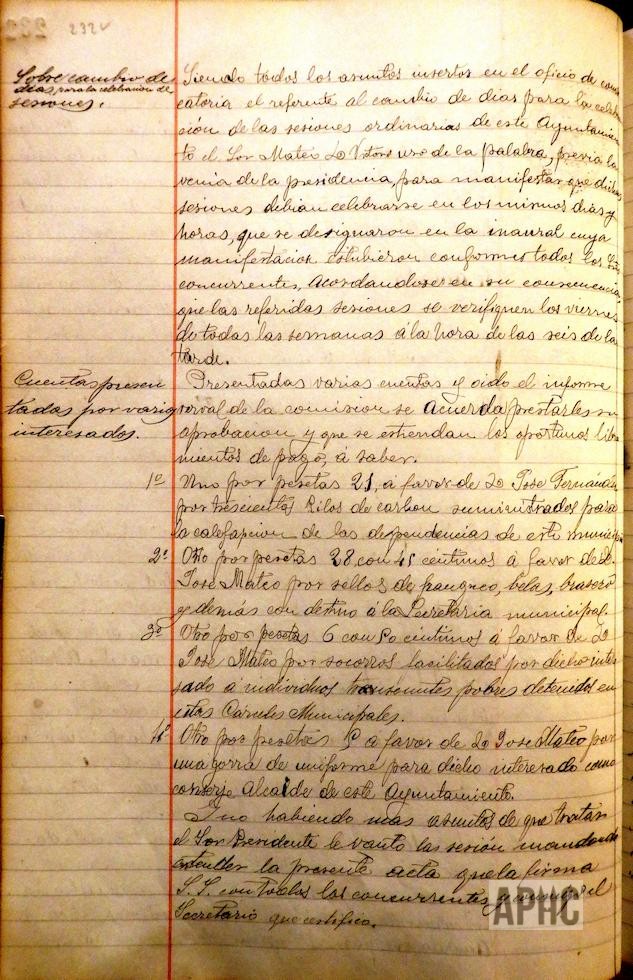 232v
Sobre cambio de
dias para la celebracion de
sesiones.
Siendo todos los asuntos insertos en el oficio de convo
catoria el referente al cambio de dias para la celebra
ción de las sesiones ordinarias de este Ayuntamien
to el Sor Mateo D. uso de la palabra, previa la
venia de la presidencia, para manifestar que dichas
sesiones debian celebrarse en los mismos dias y
horas, que se designaron en la inaural cuya
manifestacion estubieron conformes todos los Sres
concurrentes, acordandose en su consecuencia,
que las referidas sesiones se verifiquen los viernes
de todas las semanas á la hora de las seis de la
tarde.
Cuentas presen
tadas por varios
interesados.
Presentadas varias cuentas y oido el informe
verval de la comision se acuerda prestarles su
aprobacion y que se estiendan los oportunos libra
mientos de pago, á saber.
1º Uno por pesetas 21, á favor de Dn Jose Fernández
por trescientos Kilos de carbon suministrados para
la calefaccion de las dependencias de este municipio
2º Otro por pesetas 28 con 45 centimos á favor de D.
Jose Mateo por sellos de franqueo, belas, brasero
y demás con destino á la Secretaria municipal.
3º Otro por pesetas 6 con 50 centimos á favor de Dn
Jose Mateo por socorros facilitados por dicho intere
sado á individuos transeuntes pobres detenidos en
estas Carceles Municipales.
4º Otro por pesetas 5 a favor de Dn Jose Mateo por
una gorra de uniforme para dicho interesado como
conserje Alcaide de este Ayuntamiento.
Y no habiendo mas asuntos de que tratar
el Sor Presidente le vanto las sesión mandando
estender la presente acta que la firma
S.S. con todos los concurrentes y conmigo el
Secretario que certifico.
APHC